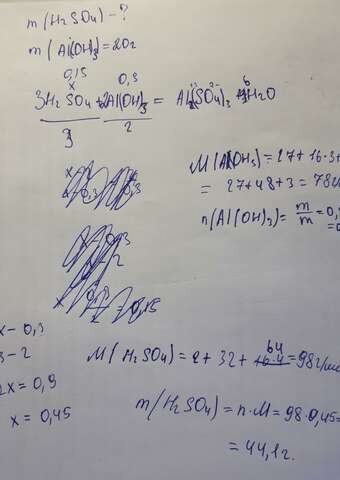 m(H₂SO₄) - ?
m(Al(OH)₃ = 20г
0,15 0,3
x
3H₂SO₄ + 2Al(OH)₃ = Al₂(SO₄)₃ + 6H₂O
3 2
M(Al(OH)₃) = 27 + 16·3 +
= 27 + 48 + 3 = 78
n(Al(OH)₃) = m/m = 0,
= 0
x 0,3
0,3
2
0,15
x - 0,3
3 - 2
2x = 0,9
x = 0,45
M(H₂SO₄) = 2 + 32 + 64 16·4 = 98г/мо
m(H₂SO₄) = n·M = 98·0,45 =
= 44,1г.